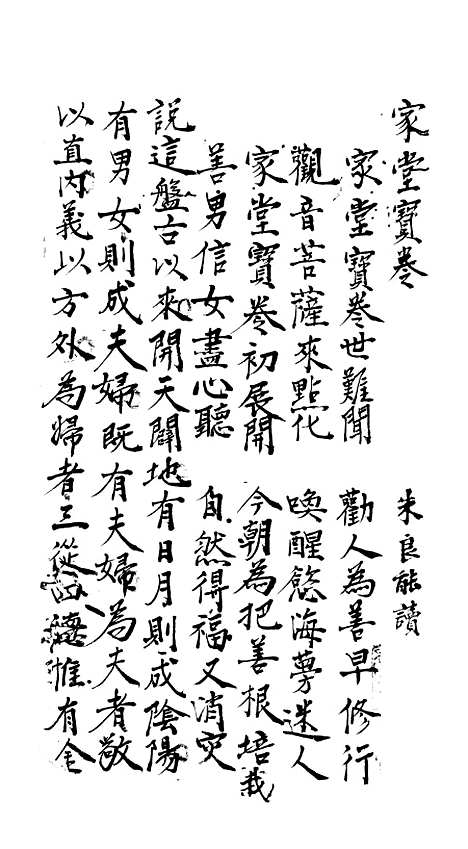 家堂寳卷 朱良能讀
家堂寳卷世難聞 勸人為善早修行
觀音菩薩來點化 喚醒慾海夢迷人
家堂寳卷初展開 今朝為把善根培栽
善男信女盡心聽 自然得福又消灾
說這盤古以來開天闢地有日月則成陰陽
有男女則成夫婦既有夫婦為夫者敬
以直內義以方外為婦者三從四德惟有全